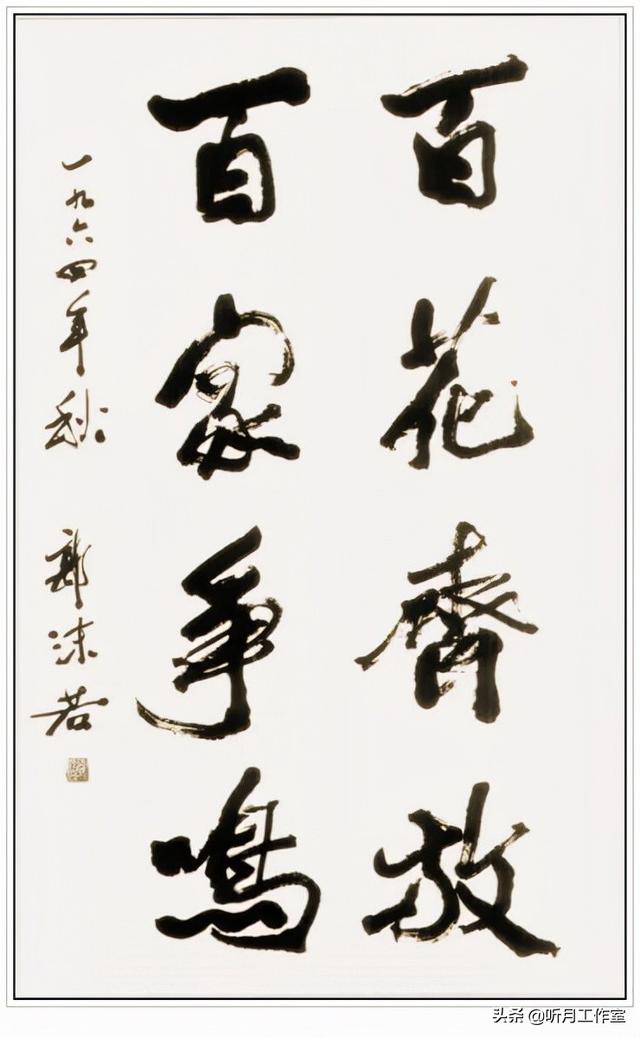 百花齊放
百家争鳴
一九六四年秋 郭沫若
头条 @听月工作室